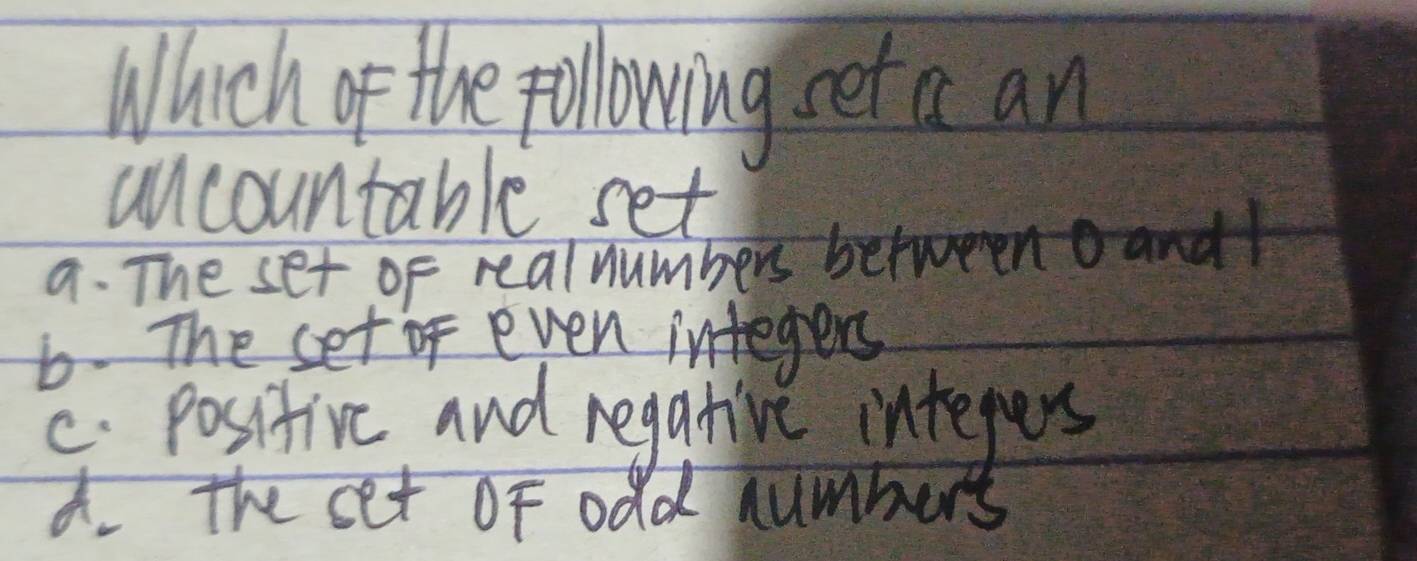 Which of the following set is an
uncountable set
a. The set of real numbers between 0 and 1
b. The set of even integers
c. positive and negative integers
d. The set of odd numbers